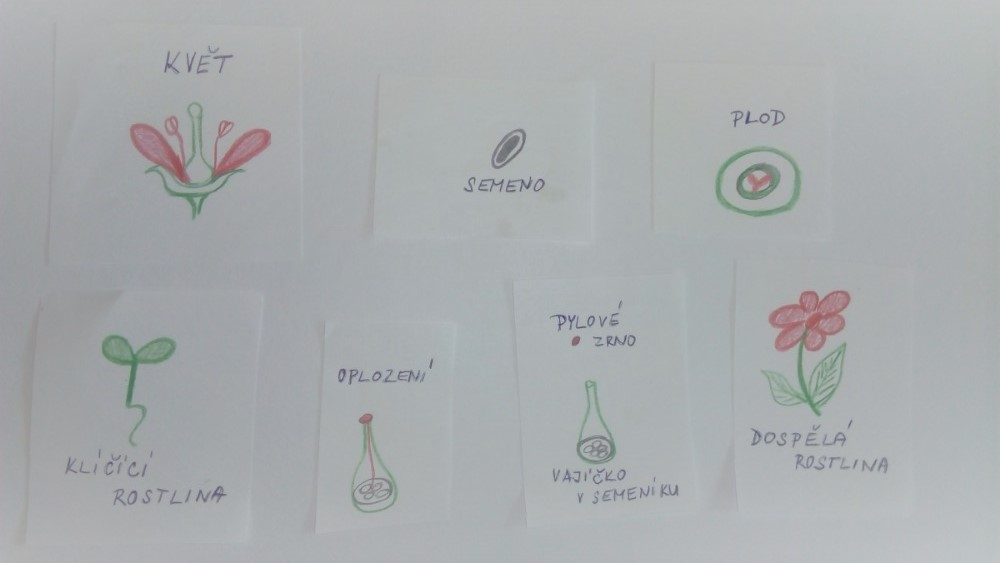 KVĚT
SEMENO
PLOD
KLÍČÍCÍ
ROSTLINA
OPLOZENÍ
PYLOVÉ
ZRNO
VAJÍČKO
V SEMENÍKU
DOSPĚLÁ
ROSTLINA